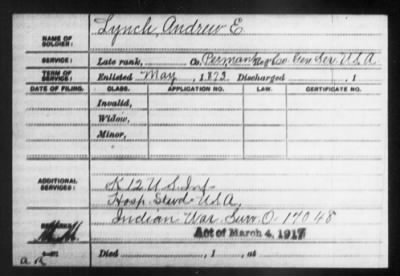 NAME OF SOLDIER: Lynch, Andrew E.
SERVICE: Late rank, Co. Permant Reg't Co. Gen Ser. U.S.A.
TERM OF SERVICE: Enlisted May, 1873 Discharged , 1
DATE OF FILING. CLASS. APPLICATION NO. LAW. CERTIFICATE NO.
Invalid,
Widow,
Minor,
ADDITIONAL SERVICES: K 12 U.S. Inf
Hosp. Stewd U.S.A.
REMARKS: Indian War Surv. O. 17048
Act of March 4, 1917
Died , 1 , at